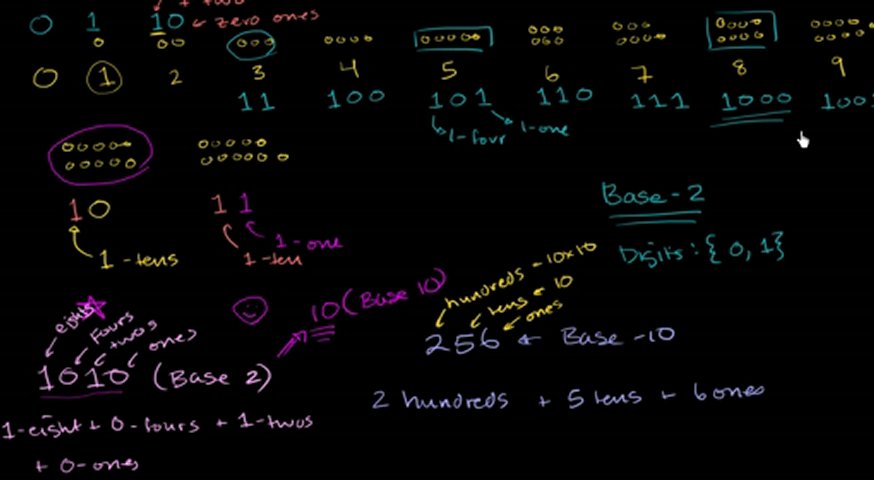 0 1 10 zero ones
0 1 2 3 4 5 6 7 8 9
11 100 101 110 111 1000 100
1-four 1-one
Base-2
10 11
1-one
1-tens 1-ten
Digits: {0, 1}
10 (Base 10)
hundreds - 10x10
tens 10
ones
eights fours twos ones
256 Base-10
1010 (Base 2)
2 hundreds + 5 tens + 6 ones
1-eight + 0-fours + 1-twos
+ 0-ones